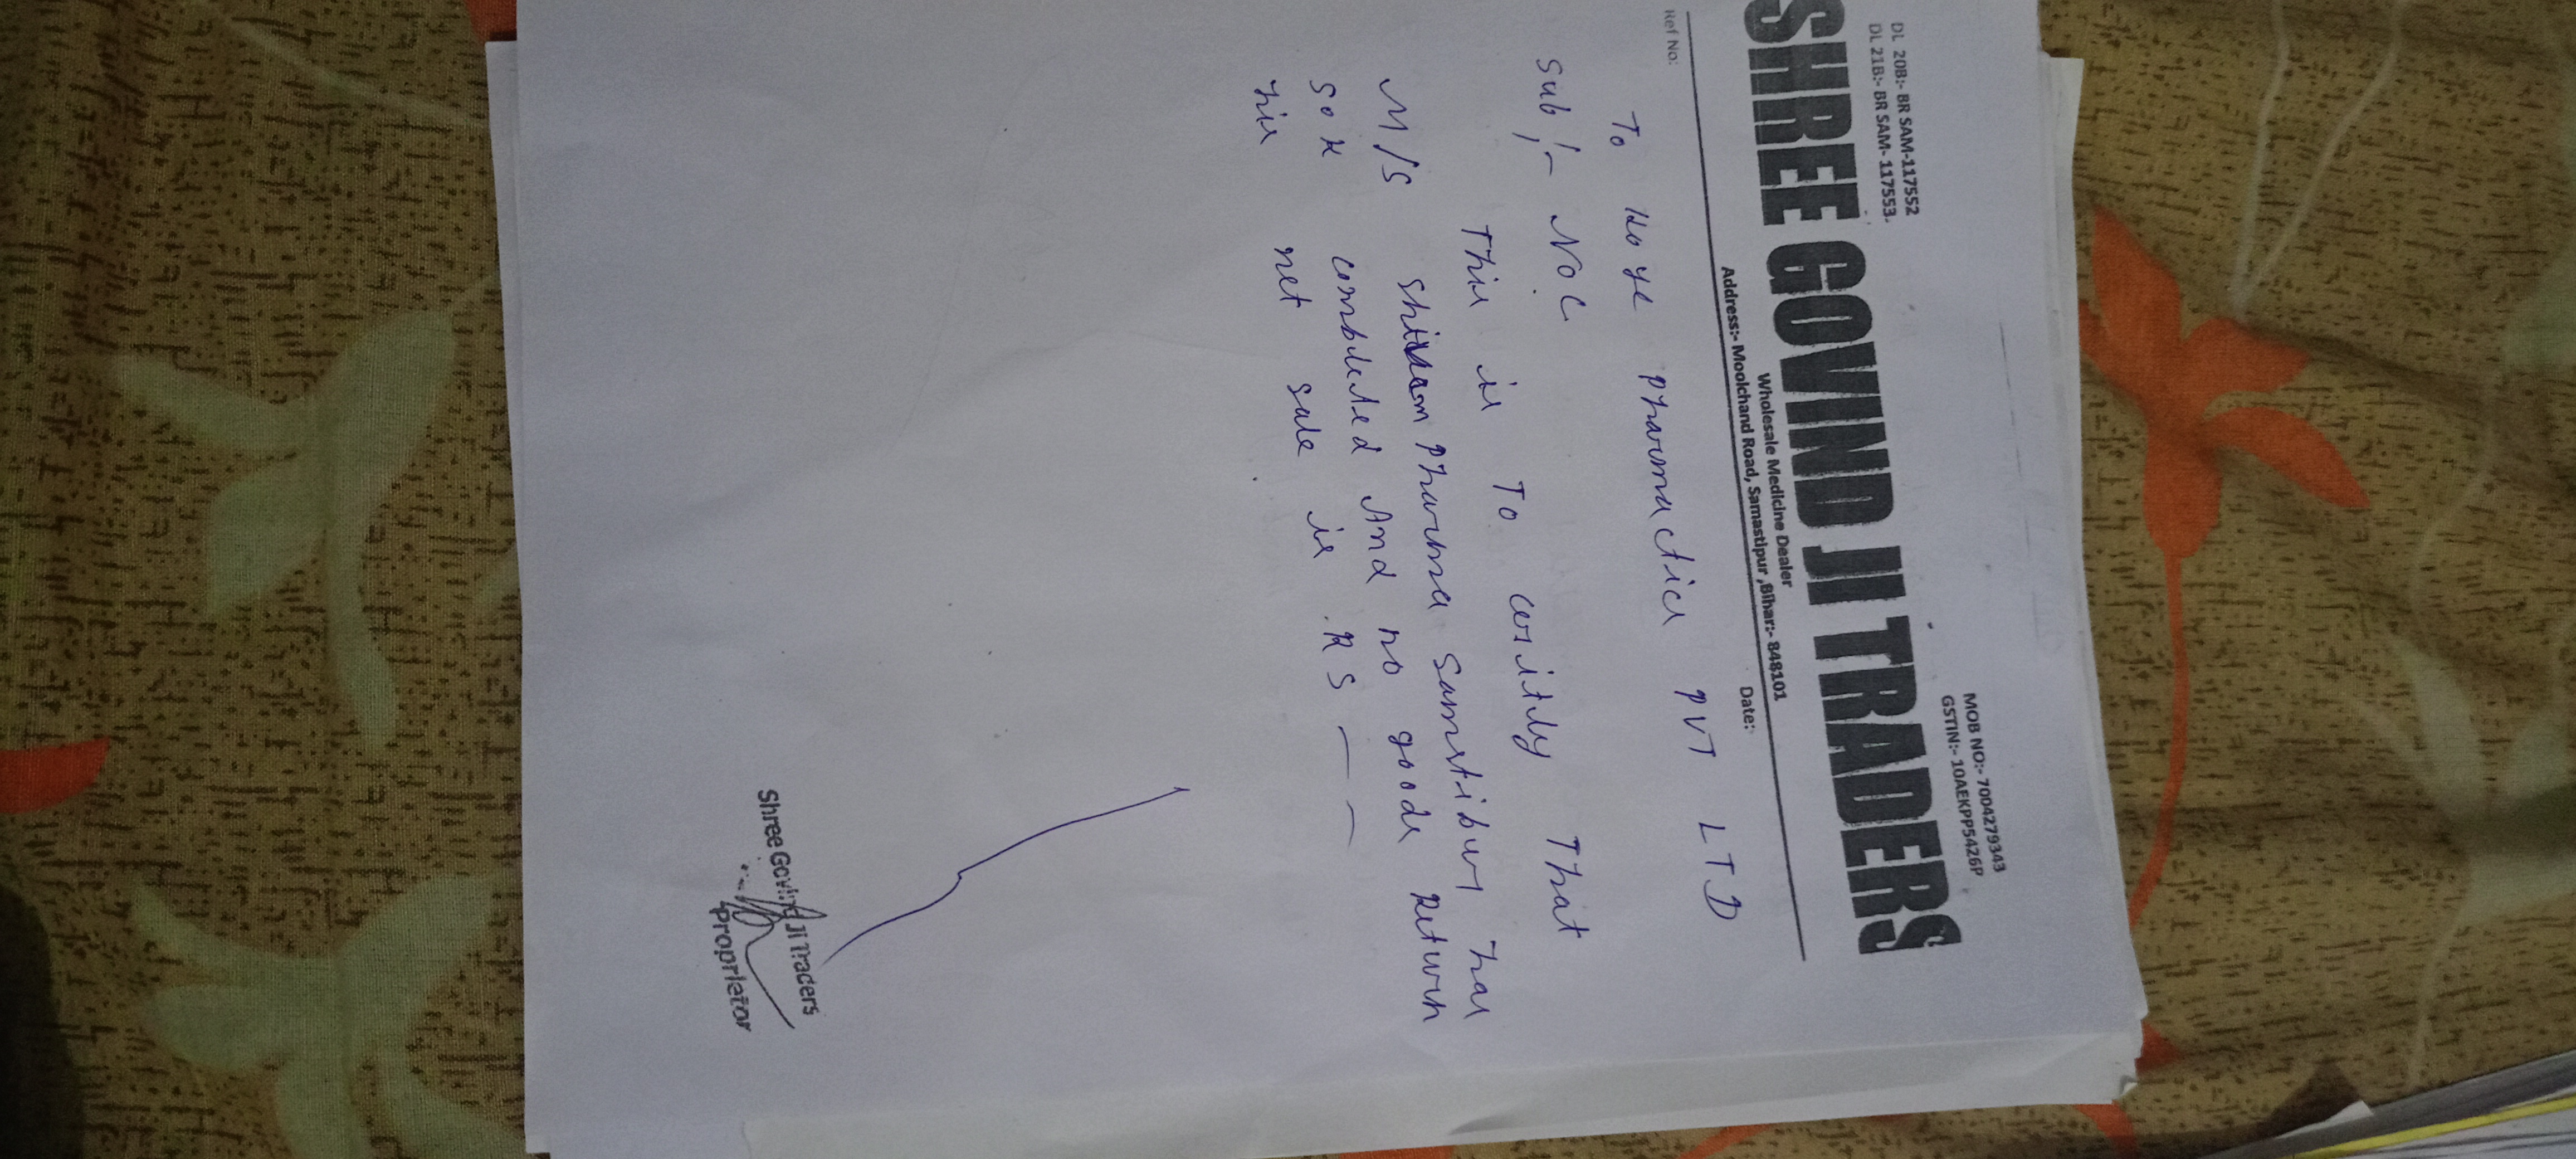 DL 20B:- BR SAM-117552
DL 21B:- BR SAM- 117553.
MOB NO:- 7004279343
GSTIN:- 10AEKPP5426P
SHREE GOVIND JI TRADERS
Wholesale Medicine Dealer
Address:- Moolchand Road, Samastipur ,Bihar:- 848101
Ref No:
Date:
To Hoye pharmactics PVT LTD
Sub:- NOC
This is To ceritily That
M/S Pharma Samstibur has
combleted And no goods Return
his net sale is RS — —
Shree Govind Ji Traders
Proprietor